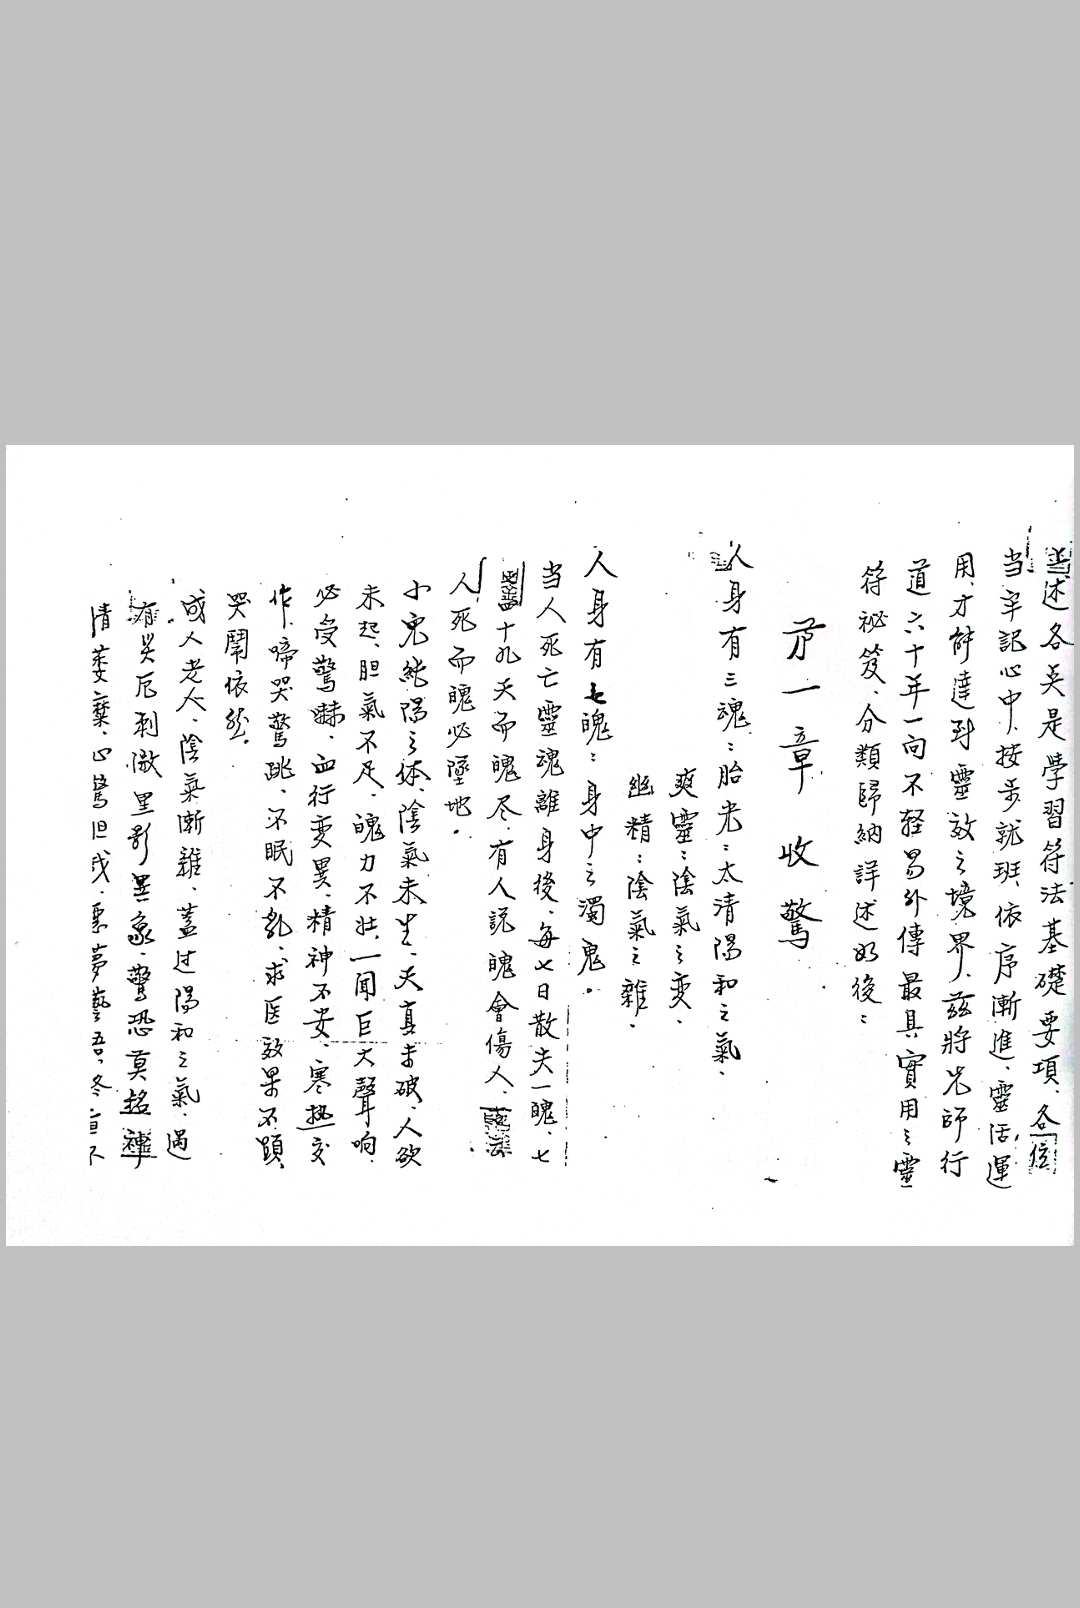 述各美是學習符法基礎要項、各位
当牢記心中、按步就班、依序漸進、靈活運
用、才能達到靈效之境界、茲將先師行
道六十年一向不轻易外傳最具實用之靈
符祕笈、分類歸納詳述如後:
第一章 收驚
人身有三魂:胎光:太清陽和之氣、
爽靈:陰氣之变、
幽精:陰氣之雜、
人身有七魄:身中之濁鬼。
当人死亡靈魂離身後、每七日散失一魄、七
七四十九天而魄尽、有人説魄會傷人、
人死而魄必墜地。
小兒純陽之体、陰氣未生、天真未破、人欲
未起、胆氣不足、魄力不壮、一聞巨大聲响、
必受驚嚇、血行变異、精神不安、寒热交
作、啼哭驚跳、不眠不乳、求医效果不顕、
哭鬧依然。
成人老人、陰氣漸雜、蓋过陽和之氣、遇
有災厄刺激里影異象、驚恐莫名、神
情萎糜、心驚胆戎、惡夢囈语、冬